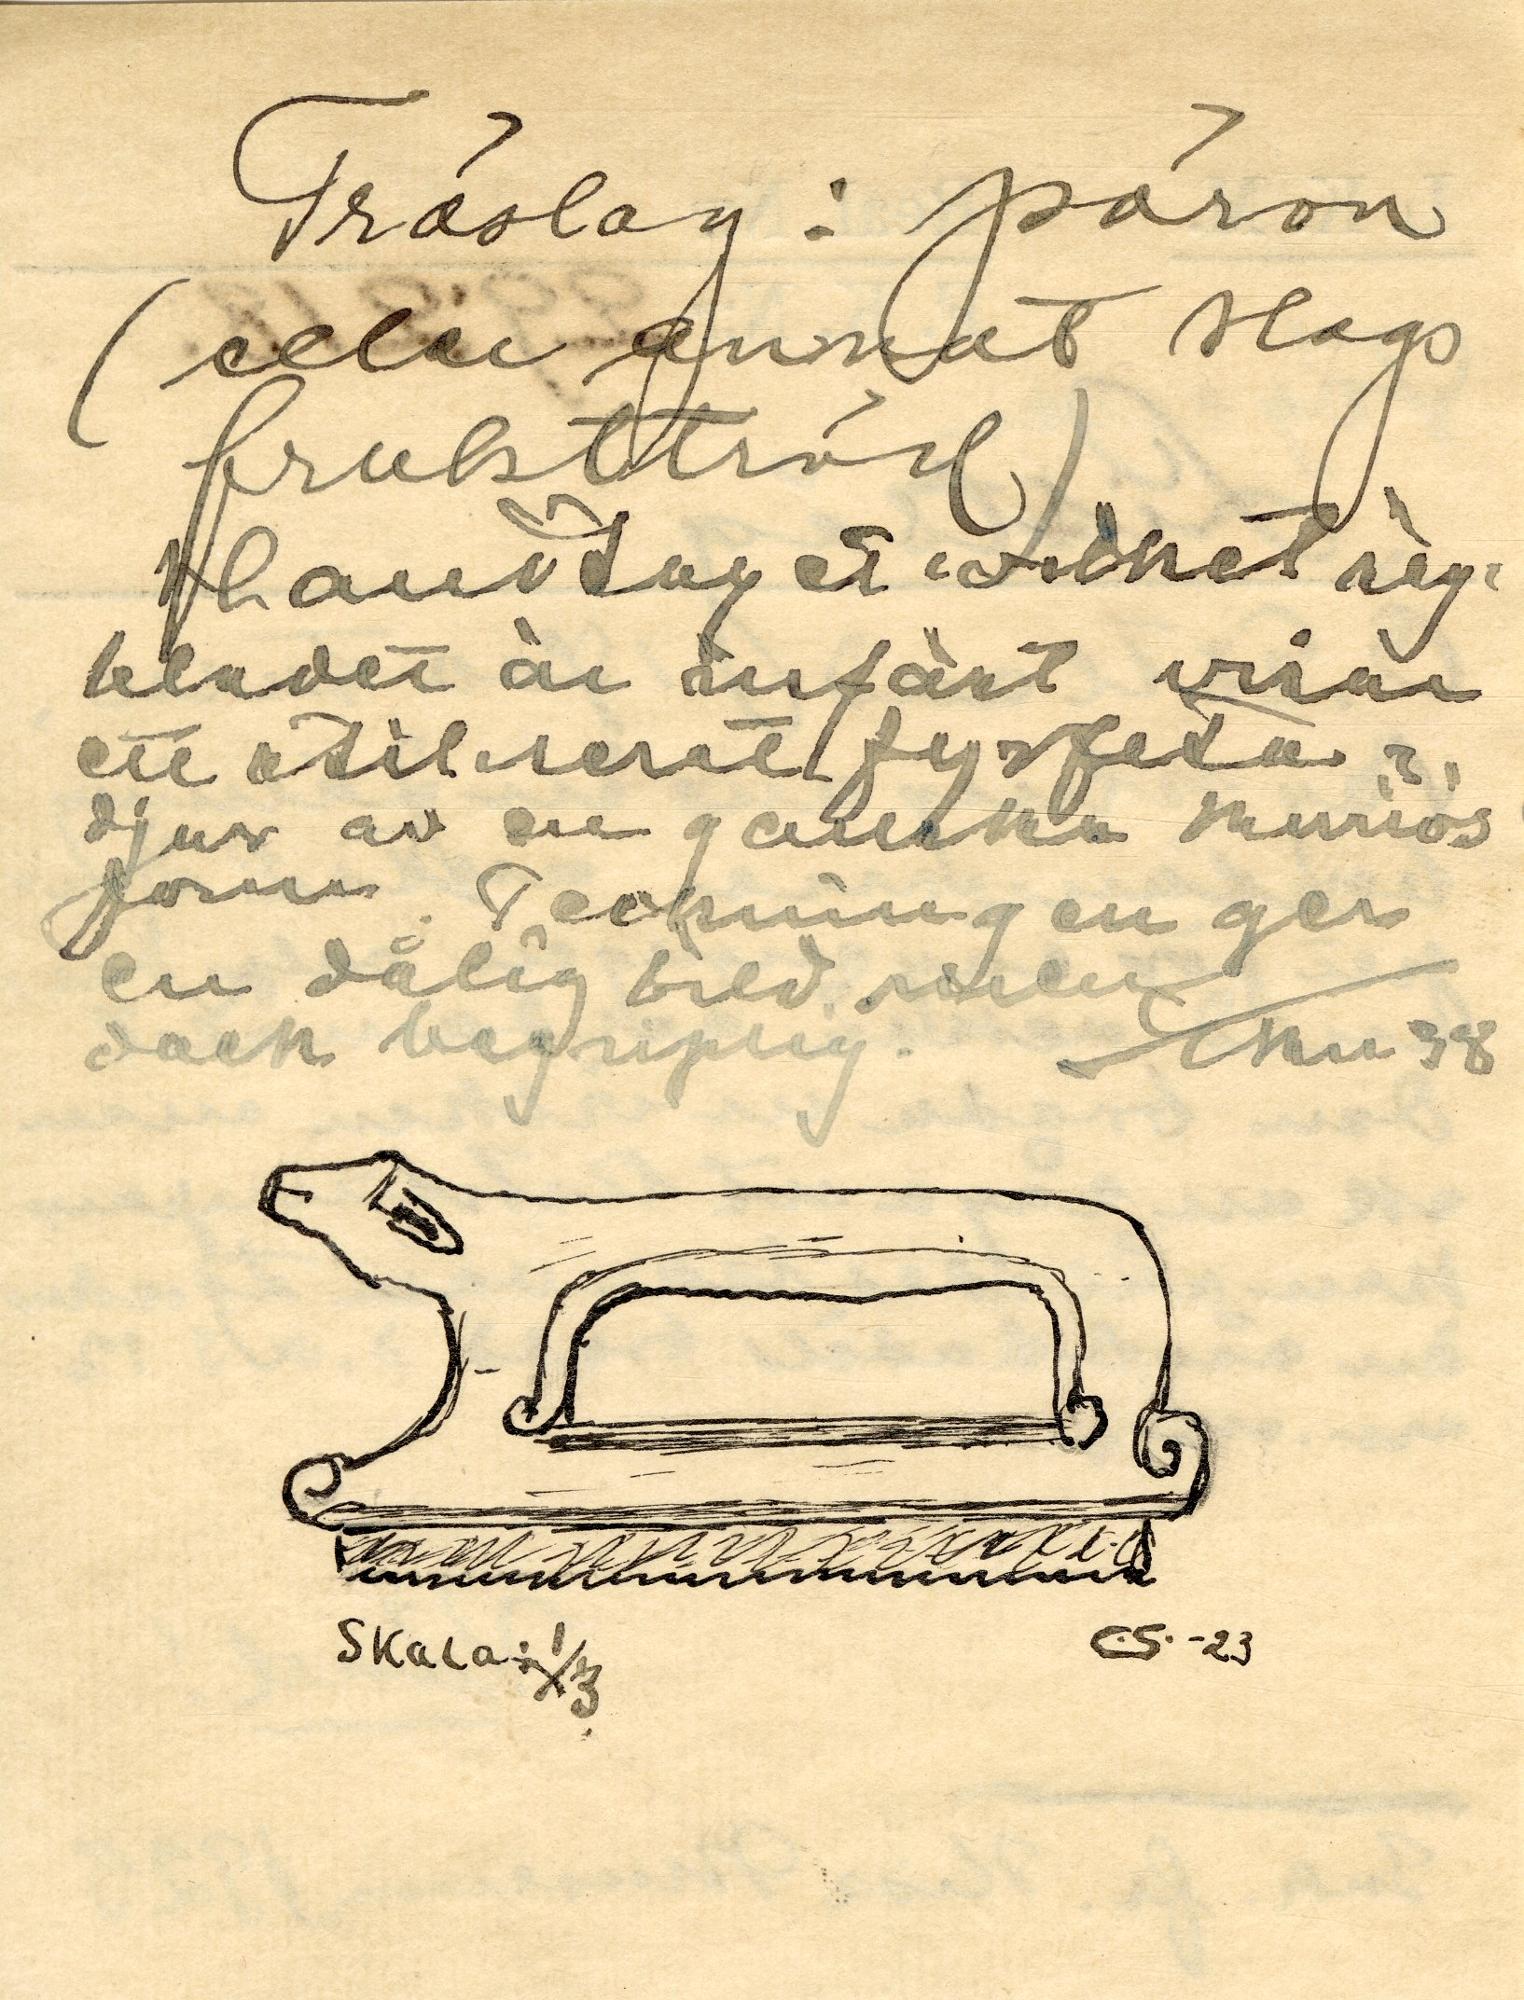 Träslag: päron
(eller annat slags
fruktträd)
Handtaget i vilket såg-
bladet är infört visar
ett stiliserat fyrfota
djur av en ganska kuriös
form. Teckningen ger
en dålig bild men
dock begriplig. 38
Skala: 1/3
C.S. -23